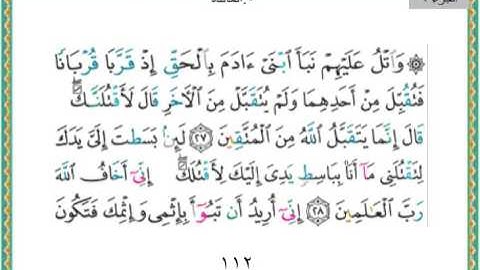 ۞ وَٱتۡلُ عَلَيۡهِمۡ نَبَأَ ٱبۡنَيۡ ءَادَمَ بِٱلۡحَقِّ إِذۡ قَرَّبَا قُرۡبَانٗا
فَتُقُبِّلَ مِنۡ أَحَدِهِمَا وَلَمۡ يُتَقَبَّلۡ مِنَ ٱلۡأٓخَرِ قَالَ لَأَقۡتُلَنَّكَۖ
قَالَ إِنَّمَا يَتَقَبَّلُ ٱللَّهُ مِنَ ٱلۡمُتَّقِينَ ٢٧ لَئِنۢ بَسَطتَ إِلَيَّ يَدَكَ
لِتَقۡتُلَنِي مَآ أَنَا۠ بِبَاسِطٖ يَدِيَ إِلَيۡكَ لِأَقۡتُلَكَۖ إِنِّيٓ أَخَافُ ٱللَّهَ
رَبَّ ٱلۡعَٰلَمِينَ ٢٨ إِنِّيٓ أُرِيدُ أَن تَبُوٓأَ بِإِثۡمِي وَإِثۡمِكَ فَتَكُونَ
١١٢